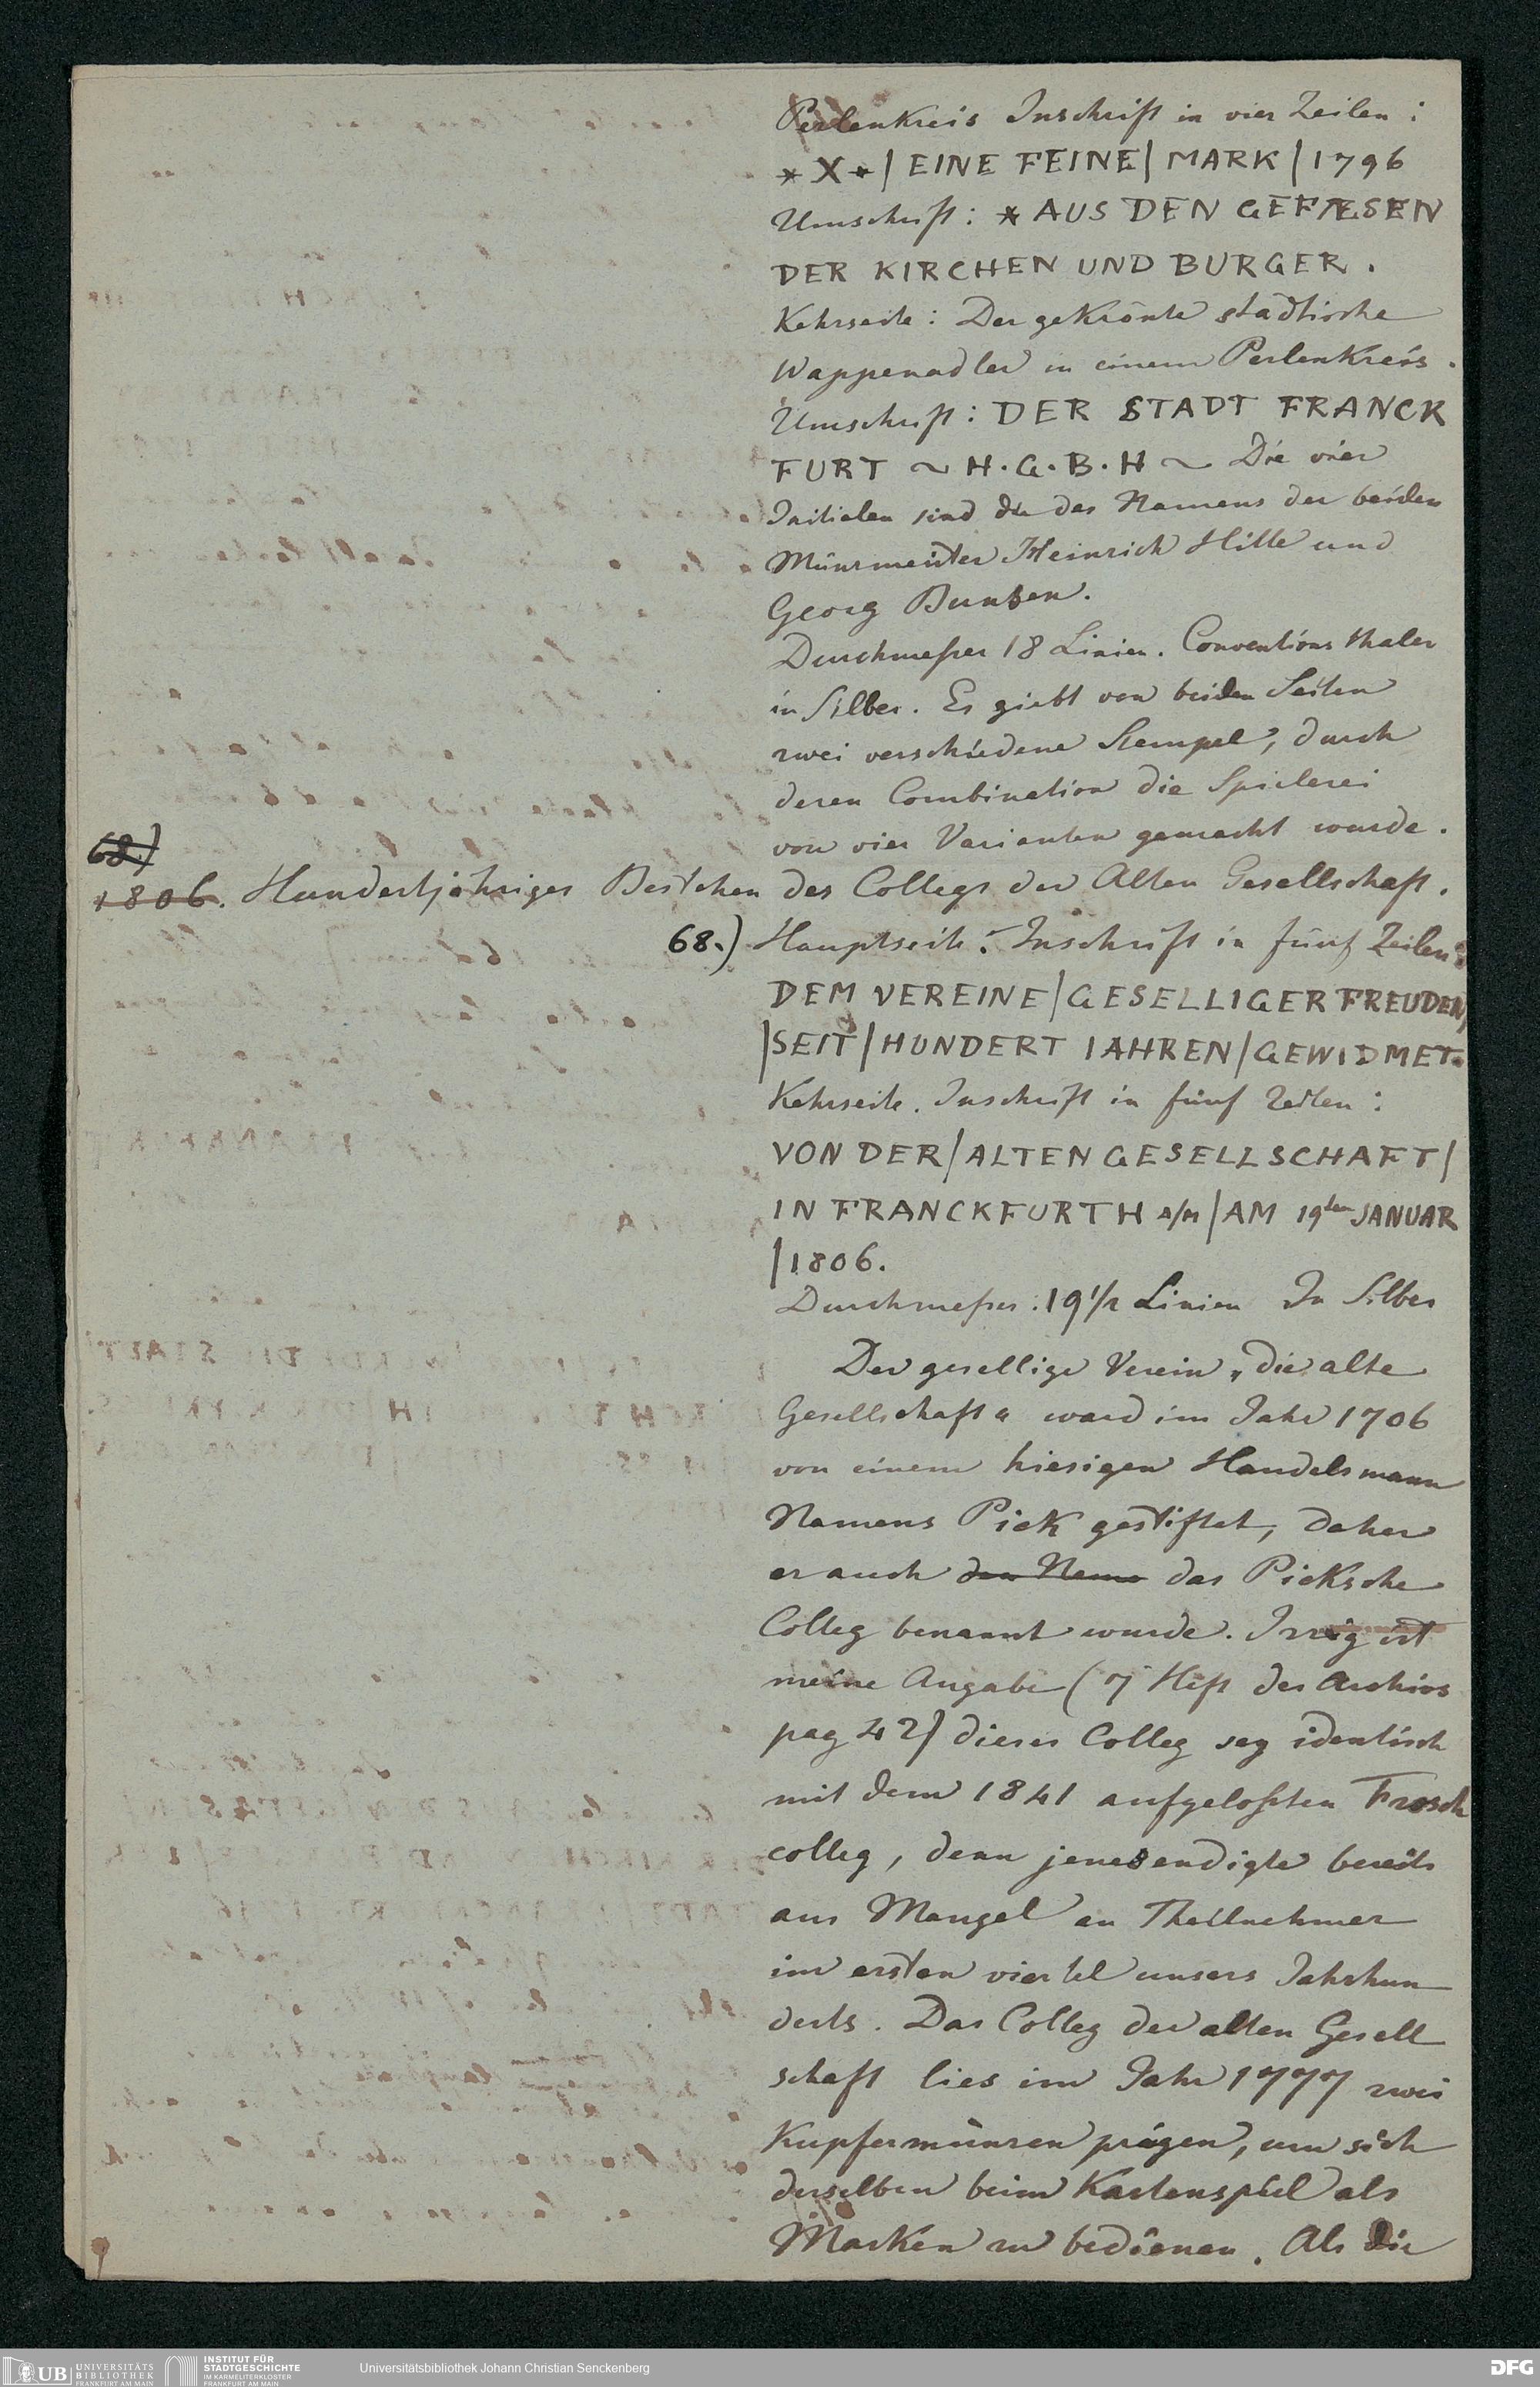 Perlenkreis Inschrift in vier Zeilen:
* X * / EINE FEINE / MARK / 1796
Umschrift: * AUS DEN GEFÆSEN
DER KIRCHEN UND BURGER.
Kehrseite: Der gekrönte städtische
Wappenadler in einem Perlenkreis.
Umschrift: DER STADT FRANCK
FURT ~ H.G.B.H ~ Die vier
Initialen sind die des Namens der beiden
Münzmeister Heinrich Hille und
Georg Bunsen.
Durchmeßer 18 Linien. Conventions thaler
in Silber. Es giebt von beiden Seiten
zwei verschiedene Stempel, durch
deren Combination die Spielerei
von vier Varianten gemacht wurde.
68.)
1806. Hundertjähriges Bestehen des Collegs der Alten Gesellschaft.
68.) Hauptseite: Inschrift in fünf Zeilen:
DEM VEREINE / GESELLIGER FREUDEN
/ SEIT / HUNDERT IAHREN / GEWIDMET.
Kehrseite. Inschrift in fünf Zeilen:
VON DER / ALTEN GESELLSCHAFT /
IN FRANCKFURTH a/M / AM 19ten JANUAR
/ 1806.
Durchmeßer: 19 1/2 Linien In Silber
Der gesellige Verein „die alte
Gesellschaft" ward im Jahr 1706
von einem hiesigen Handelsmann
Namens Pick gestiftet, daher
er auch den Name das Picksche
Colleg benannt wurde. Irrig ist
meine Angabe (7 Heft des Archivs
pag 42) dieses Colleg sey identisch
mit dem 1841 aufgelößten Frosch
colleg, denn jenes endigte bereits
aus Mangel an Theilnehmer
im ersten viertel unsers Jahrhun
derts. Das Colleg der alten Gesell
schaft lies im Jahr 1777 zwei
Kupfermünzen prägen, um sich
derselben beim Kartenspiel als
Marken zu bedienen. Als die
UB UNIVERSITÄTS
BIBLIOTHEK
FRANKFURT AM MAIN
INSTITUT FÜR
STADTGESCHICHTE
IM KARMELITERKLOSTER
FRANKFURT AM MAIN
Universitätsbibliothek Johann Christian Senckenberg
DFG